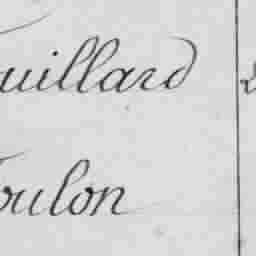 uillard
oulon